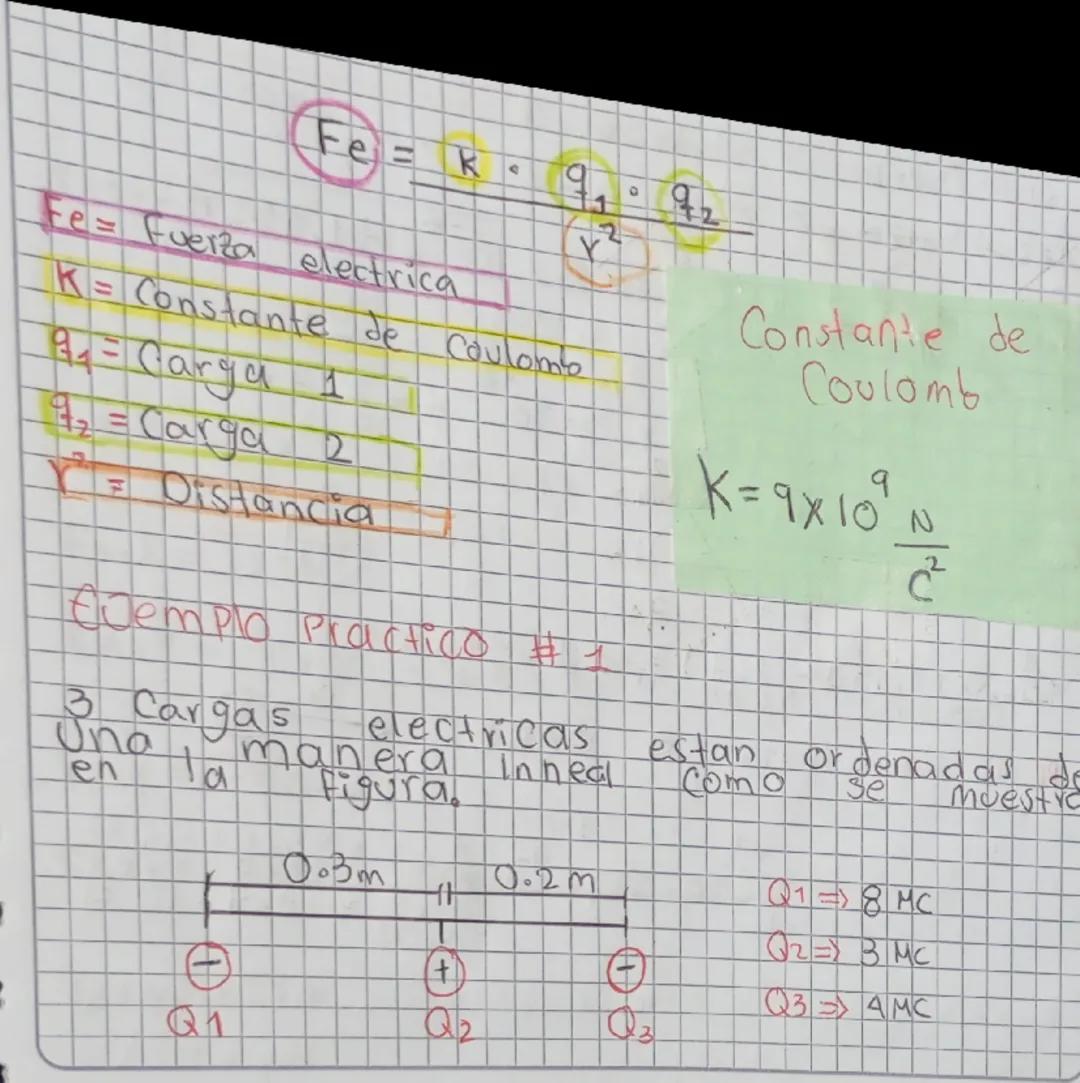 Fe = k · q₁ · q₂
r²
Fe = Fuerza electrica
K = Constante de Coulomb
q₁ = Carga 1
q₂ = Carga 2
r² = Distancia
Constante de
Coulomb
K = 9x10⁹ N
C²
Ejemplo Practico # 1
3 Cargas electricas estan ordenadas de
una manera inneal como se muestra
en la figura.
0.3m 0.2m
- + -
Q1 Q2 Q3
Q1 => 8 MC
Q2 => 3 MC
Q3 => 4 MC